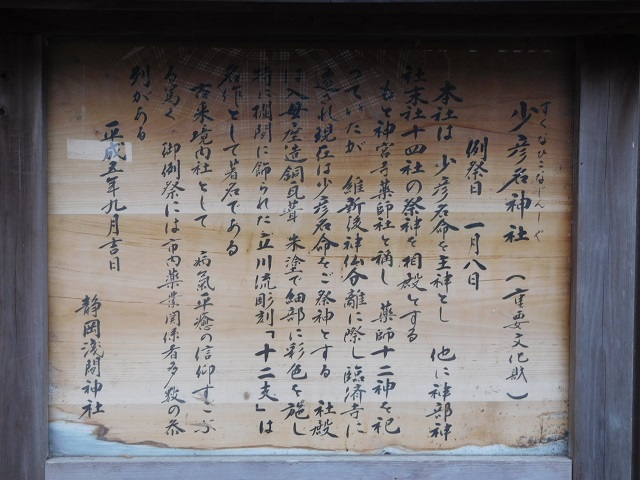 すくなひこなじんじゃ
少彦名神社 (重要文化財)
例祭日 一月八日
本社は 少彦名命を主神とし 他に神部神
社末社十四社の祭神を相殿とする
もと神宮寺薬師社と称し 薬師十二神を祀
っていたが 維新後神仏分離に際し臨済寺に
遷され現在は少彦名命をご祭神とする 社殿
は入母屋造銅瓦葺 朱塗で細部に彩色を施し
特に欄間に飾られた立川流彫刻「十二支」は
名作として著名である
古来境内社として 病気平癒の信仰すこぶ
る篤く 御例祭には市内薬業関係者多数の参
列がある
平成五年九月吉日
静岡浅間神社